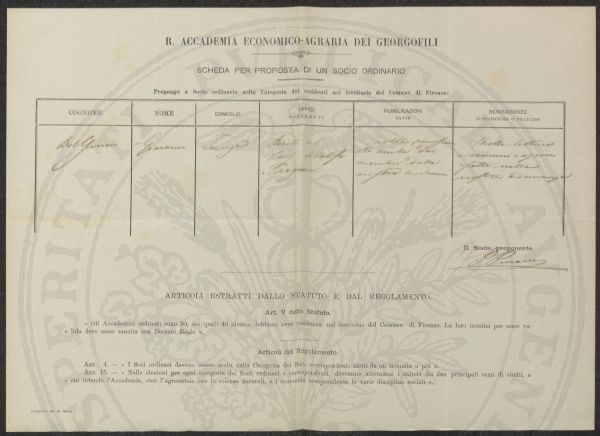 R. ACCADEMIA ECONOMICO-AGRARIA DEI GEORGOFILI
SCHEDA PER PROPOSTA DI UN SOCIO ORDINARIO
Propongo a Socio ordinario nella Categoria dei residenti nel territorio del Comune di Firenze:
COGNOME NOME DOMICILIO UFFICI PUBBLICAZIONI FATTE BENEMERENZE SCIENTIFICHE O PRATICHE
Firenze
Molte letture
e comunicazioni
fatte nelle
nostre adunanze
della
Il Socio proponente
ARTICOLI ESTRATTI DALLO STATUTO E DAL REGOLAMENTO.
Art. V dello Statuto.
« Gli Accademici ordinari sono 50, dei quali 40 almeno debbono aver residenza nel territorio del Comune di Firenze. La loro nomina per esser va-
« lida deve esser sancita con Decreto Reale ».
Articoli del Regolamento.
ART. 4. — « I Soci ordinari devono essere scelti nella Categoria dei Soci corrispondenti eletti da un triennio o più ».
ART. 15. — « Nelle elezioni per ogni categoria dei Soci, ordinari e corrispondenti, dovranno alternarsi i cultori dei due principali rami di studii, a
« cui intende l'Accademia, cioè l'agronomia con le scienze naturali, e l'economia comprendente le varie discipline sociali ».